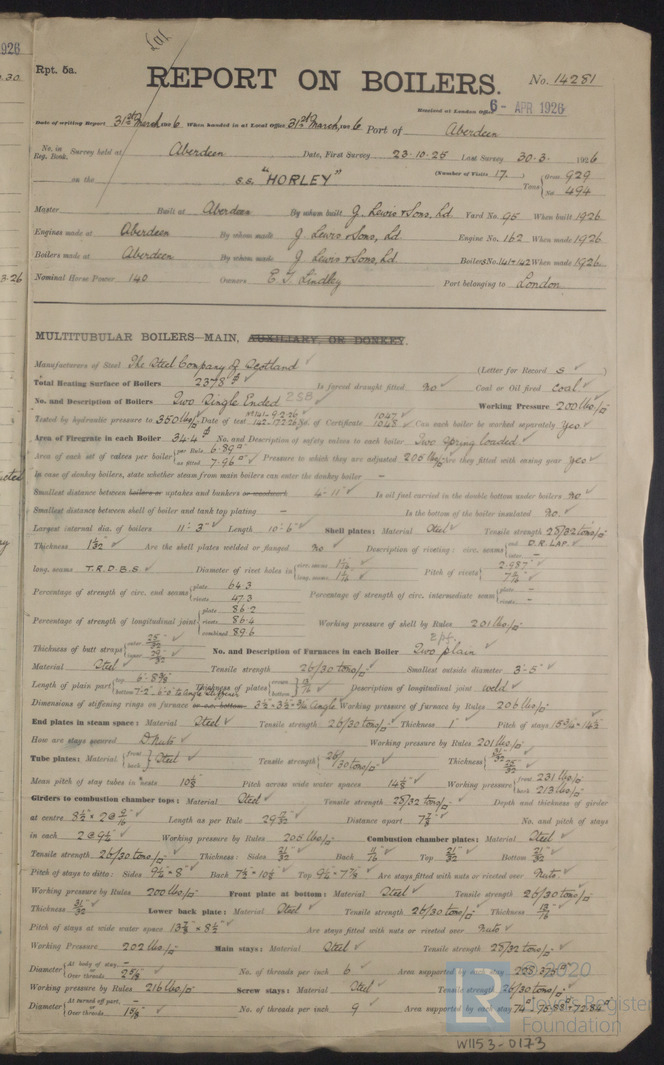 1926
Rpt. 5a.
REPORT ON BOILERS.
No. 14281
Received at London Office 6- APR 1926
Date of writing Report 31st March 1926 When handed in at Local Office 31st March, 1926 Port of Aberdeen
No. in Reg. Book. Survey held at Aberdeen Date, First Survey 23.10.25 Last Survey 30.3. 1926
on the S.S. "HORLEY" (Number of Visits 17.) Tons { Gross 929 Net 494
Master Built at Aberdeen By whom built J. Lewis & Sons, Ld. Yard No. 95 When built 1926
Engines made at Aberdeen By whom made J. Lewis & Sons, Ld Engine No. 162 When made 1926
Boilers made at Aberdeen By whom made J. Lewis & Sons, Ld. Boilers No. 141+142 When made 1926
Nominal Horse Power 140 Owners E. T. Lindley Port belonging to London
MULTITUBULAR BOILERS—MAIN, AUXILIARY, OR DONKEY.
Manufacturers of Steel The Steel Company of Scotland (Letter for Record S)
Total Heating Surface of Boilers 2378 Is forced draught fitted no Coal or Oil fired Coal
No. and Description of Boilers Two Single Ended 2SB Working Pressure 200 lbs/□"
Tested by hydraulic pressure to 350 lbs Date of test No. of Certificate 1047 1048 Can each boiler be worked separately Yes
Area of Firegrate in each Boiler 34.4 No. and Description of safety valves to each boiler Two Spring loaded
Area of each set of valves per boiler { per Rule 6.89 as fitted 7.96 Pressure to which they are adjusted 205 lbs Are they fitted with easing gear yes
In case of donkey boilers, state whether steam from main boilers can enter the donkey boiler –
Smallest distance between boilers or uptakes and bunkers or woodwork 4'-11" Is oil fuel carried in the double bottom under boilers no
Smallest distance between shell of boiler and tank top plating – Is the bottom of the boiler insulated no.
Largest internal dia. of boilers 11'-3" Length 10'-6" Shell plates: Material Steel Tensile strength 28/32 tons/□"
Thickness 1 1/32 Are the shell plates welded or flanged no Description of riveting: circ. seams { end D.R. LAP. inter. –
long. seams T.R.D.B.S Diameter of rivet holes in { circ. seams long. seams Pitch of rivets { 2.987"
Percentage of strength of circ. end seams { plate 64.3 rivets 47.3 Percentage of strength of circ. intermediate seam { plate – rivets –
Percentage of strength of longitudinal joint { plate 86.2 rivets 86.4 combined 89.6 Working pressure of shell by Rules 201 lbs/□"
Thickness of butt straps { outer inner No. and Description of Furnaces in each Boiler Two plain
Material Steel Tensile strength 26/30 tons/□" Smallest outside diameter 3'-5"
Length of plain part { top bottom Thickness of plates { crown bottom Description of longitudinal joint weld
Dimensions of stiffening rings on furnace or c.c. bottom Angle Working pressure of furnace by Rules 206 lbs/□"
End plates in steam space: Material Steel Tensile strength 26/30 tons/□" Thickness 1" Pitch of stays 15 3/4 × 16 1/2
How are stays secured D. Nuts Working pressure by Rules 201 lbs/□"
Tube plates: Material { front back } Steel Tensile strength { 26/30 tons/□" Thickness { 31/32 25/32
Mean pitch of stay tubes in nests 10 1/8 Pitch across wide water spaces 14 1/2 Working pressure { front 231 lbs/□" back 213 lbs/□"
Girders to combustion chamber tops: Material Steel Tensile strength 28/32 tons/□" Depth and thickness of girder
at centre Length as per Rule Distance apart No. and pitch of stays
in each 2 @ 9 1/2 Working pressure by Rules 205 lbs/□" Combustion chamber plates: Material Steel
Tensile strength 26/30 tons/□" Thickness: Sides 21/32 Back 11/16 Top 21/32 Bottom 21/32
Pitch of stays to ditto: Sides 9 1/2 × 8 Back 7 3/4 × 10 1/2 Top 9 1/2 × 7 7/8 Are stays fitted with nuts or riveted over Nuts
Working pressure by Rules 200 lbs/□" Front plate at bottom: Material Steel Tensile strength 26/30 tons/□"
Thickness 31/32 Lower back plate: Material Steel Tensile strength 26/30 tons/□" Thickness 13/16
Pitch of stays at wide water space 13 7/8 × 8 1/2 Are stays fitted with nuts or riveted over Nuts
Working Pressure 202 lbs/□" Main stays: Material Steel Tensile strength 28/32 tons/□"
Diameter { At body of stay, – Over threads 2 5/8 No. of threads per inch 6 Area supported by each stay
Working pressure by Rules 216 lbs/□" Screw stays: Material Steel Tensile strength 26/30 tons/□"
Diameter { At turned off part, – Over threads 1 5/8 No. of threads per inch 9 Area supported by each stay
© 2020
LR
Lloyd's Register
Foundation
W1153-0173